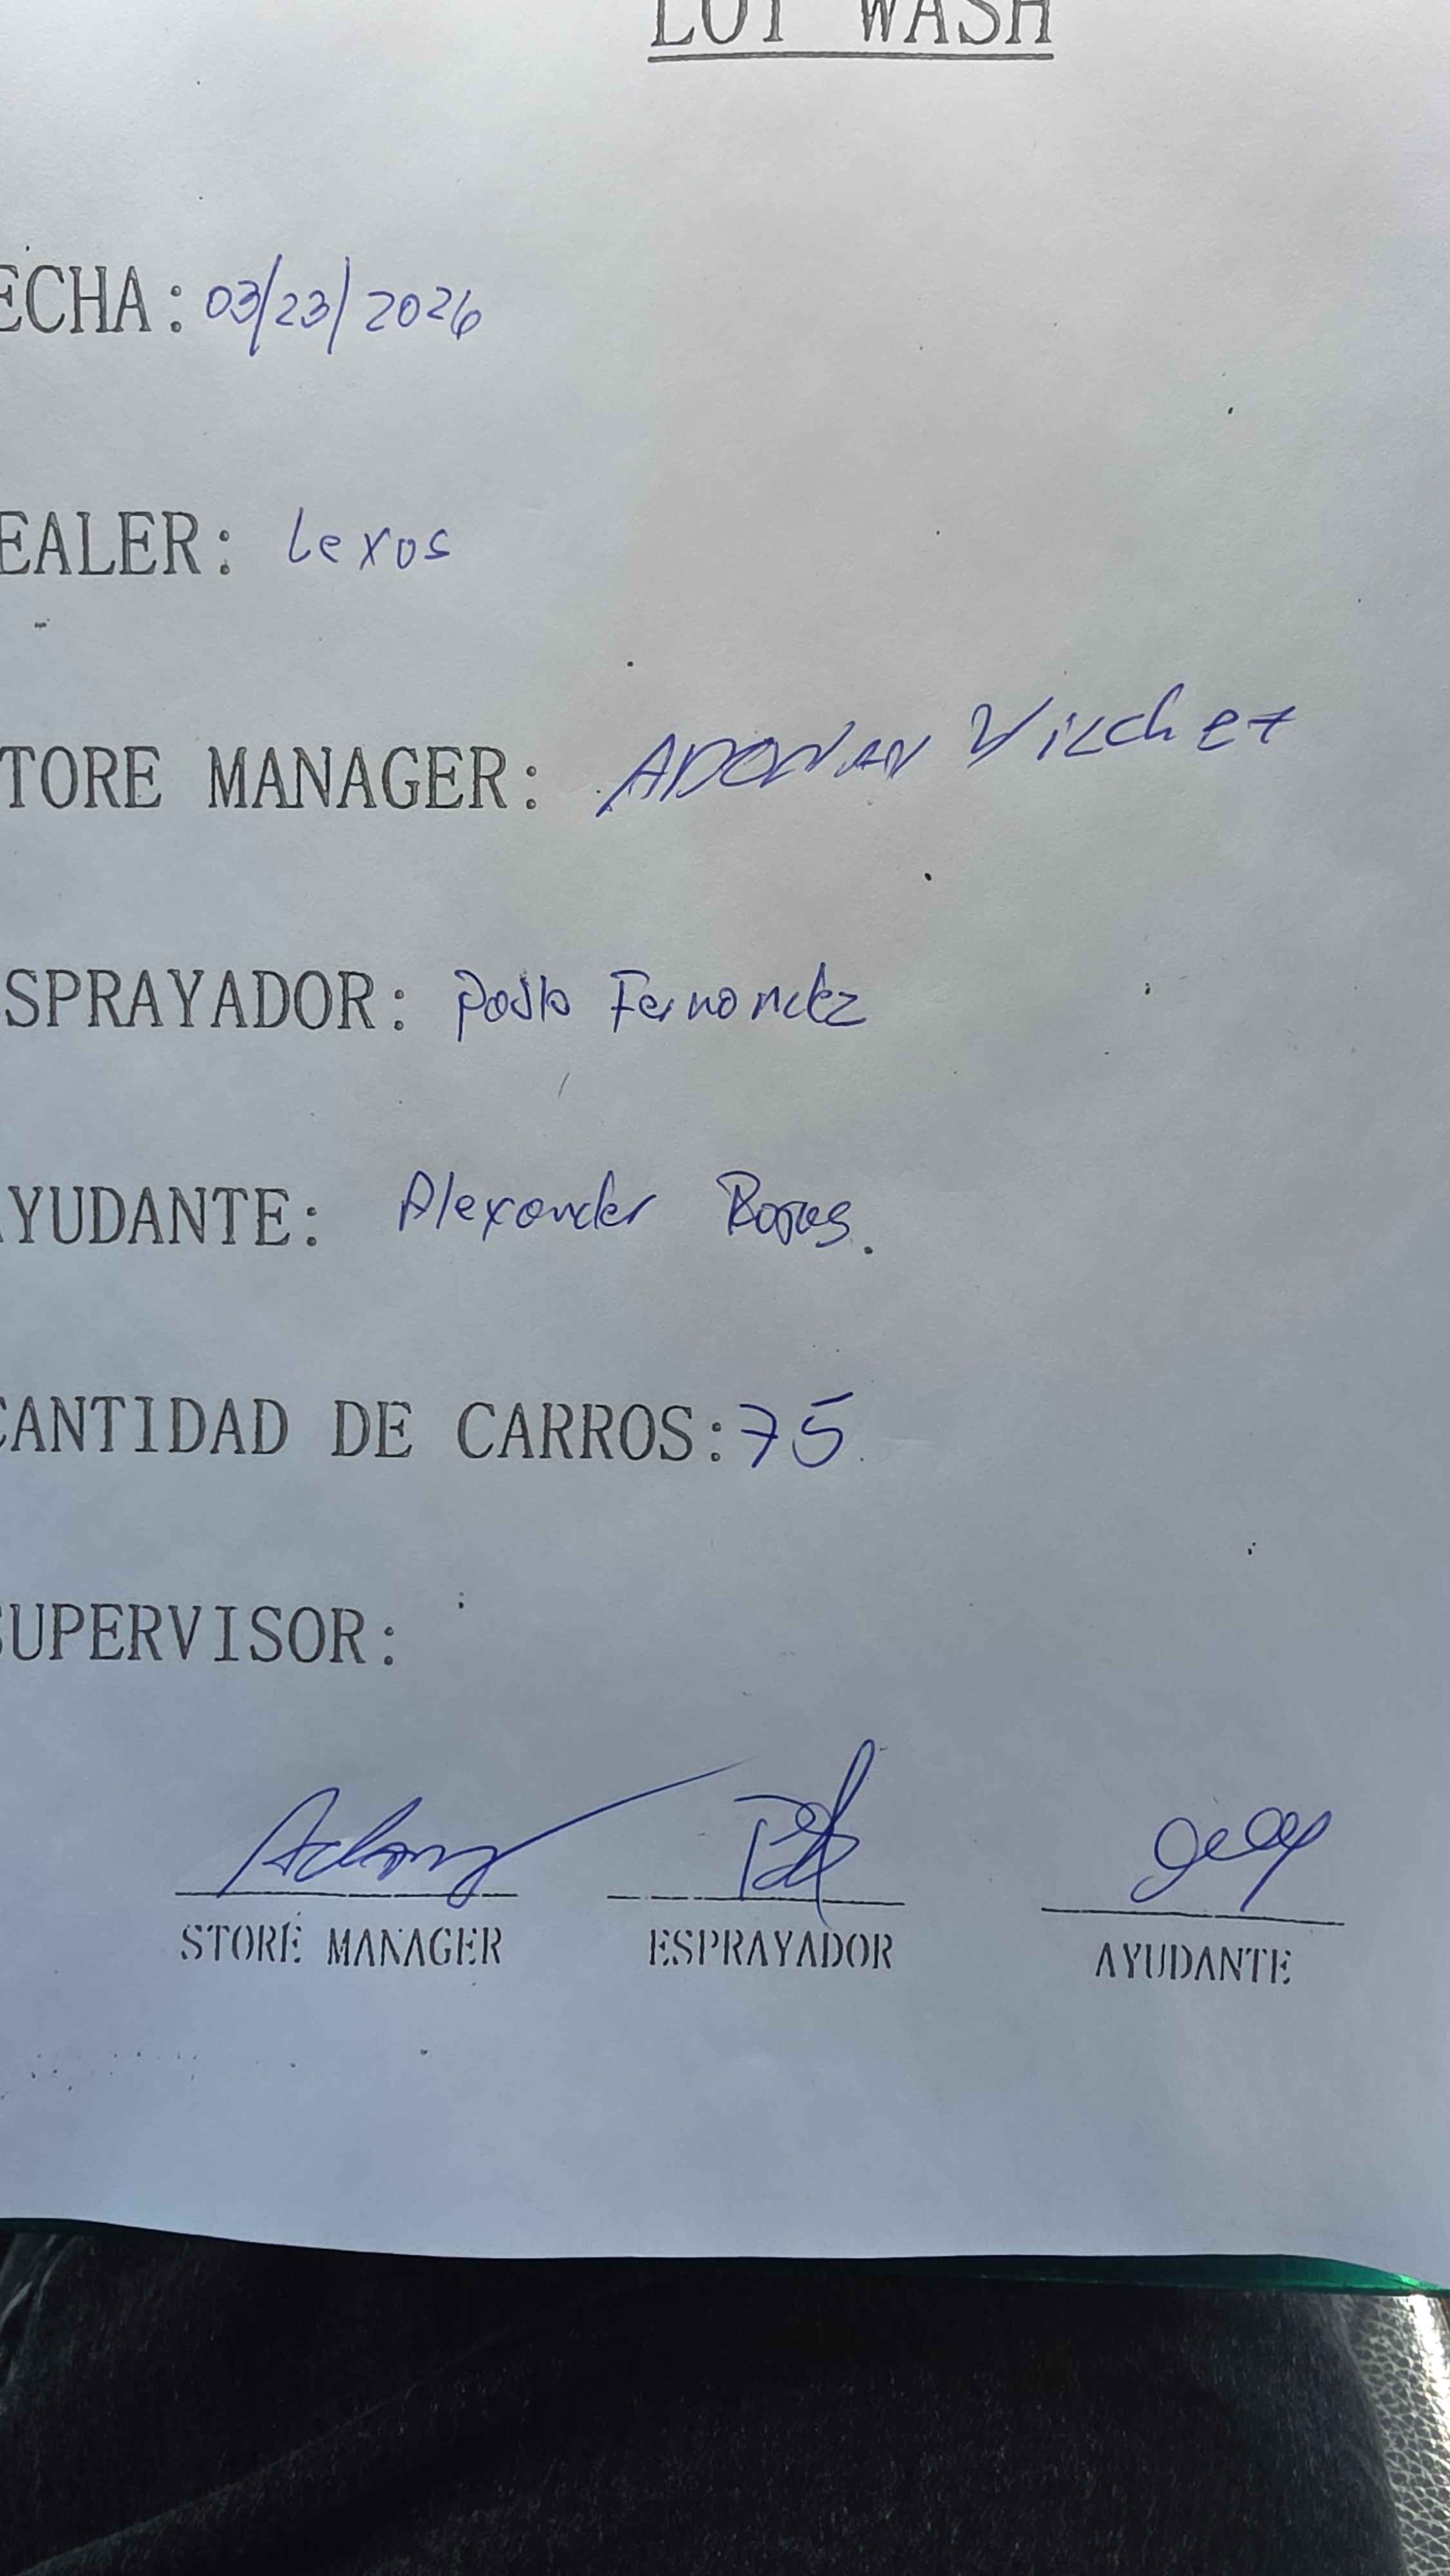 LOT WASH
ECHA: 03/23/2026
EALER: Lexos
TORE MANAGER: ADONAN Vilchez
SPRAYADOR: Pablo Fernandez
AYUDANTE: Alexander Rojas.
CANTIDAD DE CARROS: 75
SUPERVISOR:
STORE MANAGER ESPRAYADOR AYUDANTE